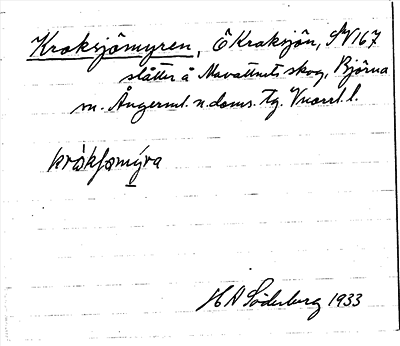 Kroksjömyren, Ö Kroksjön, SV 167
slåtter å Mavattnets skog, Björna
sn. Ångerml. n. doms. tg. Vnorrl. l.
H A Söderberg 1933